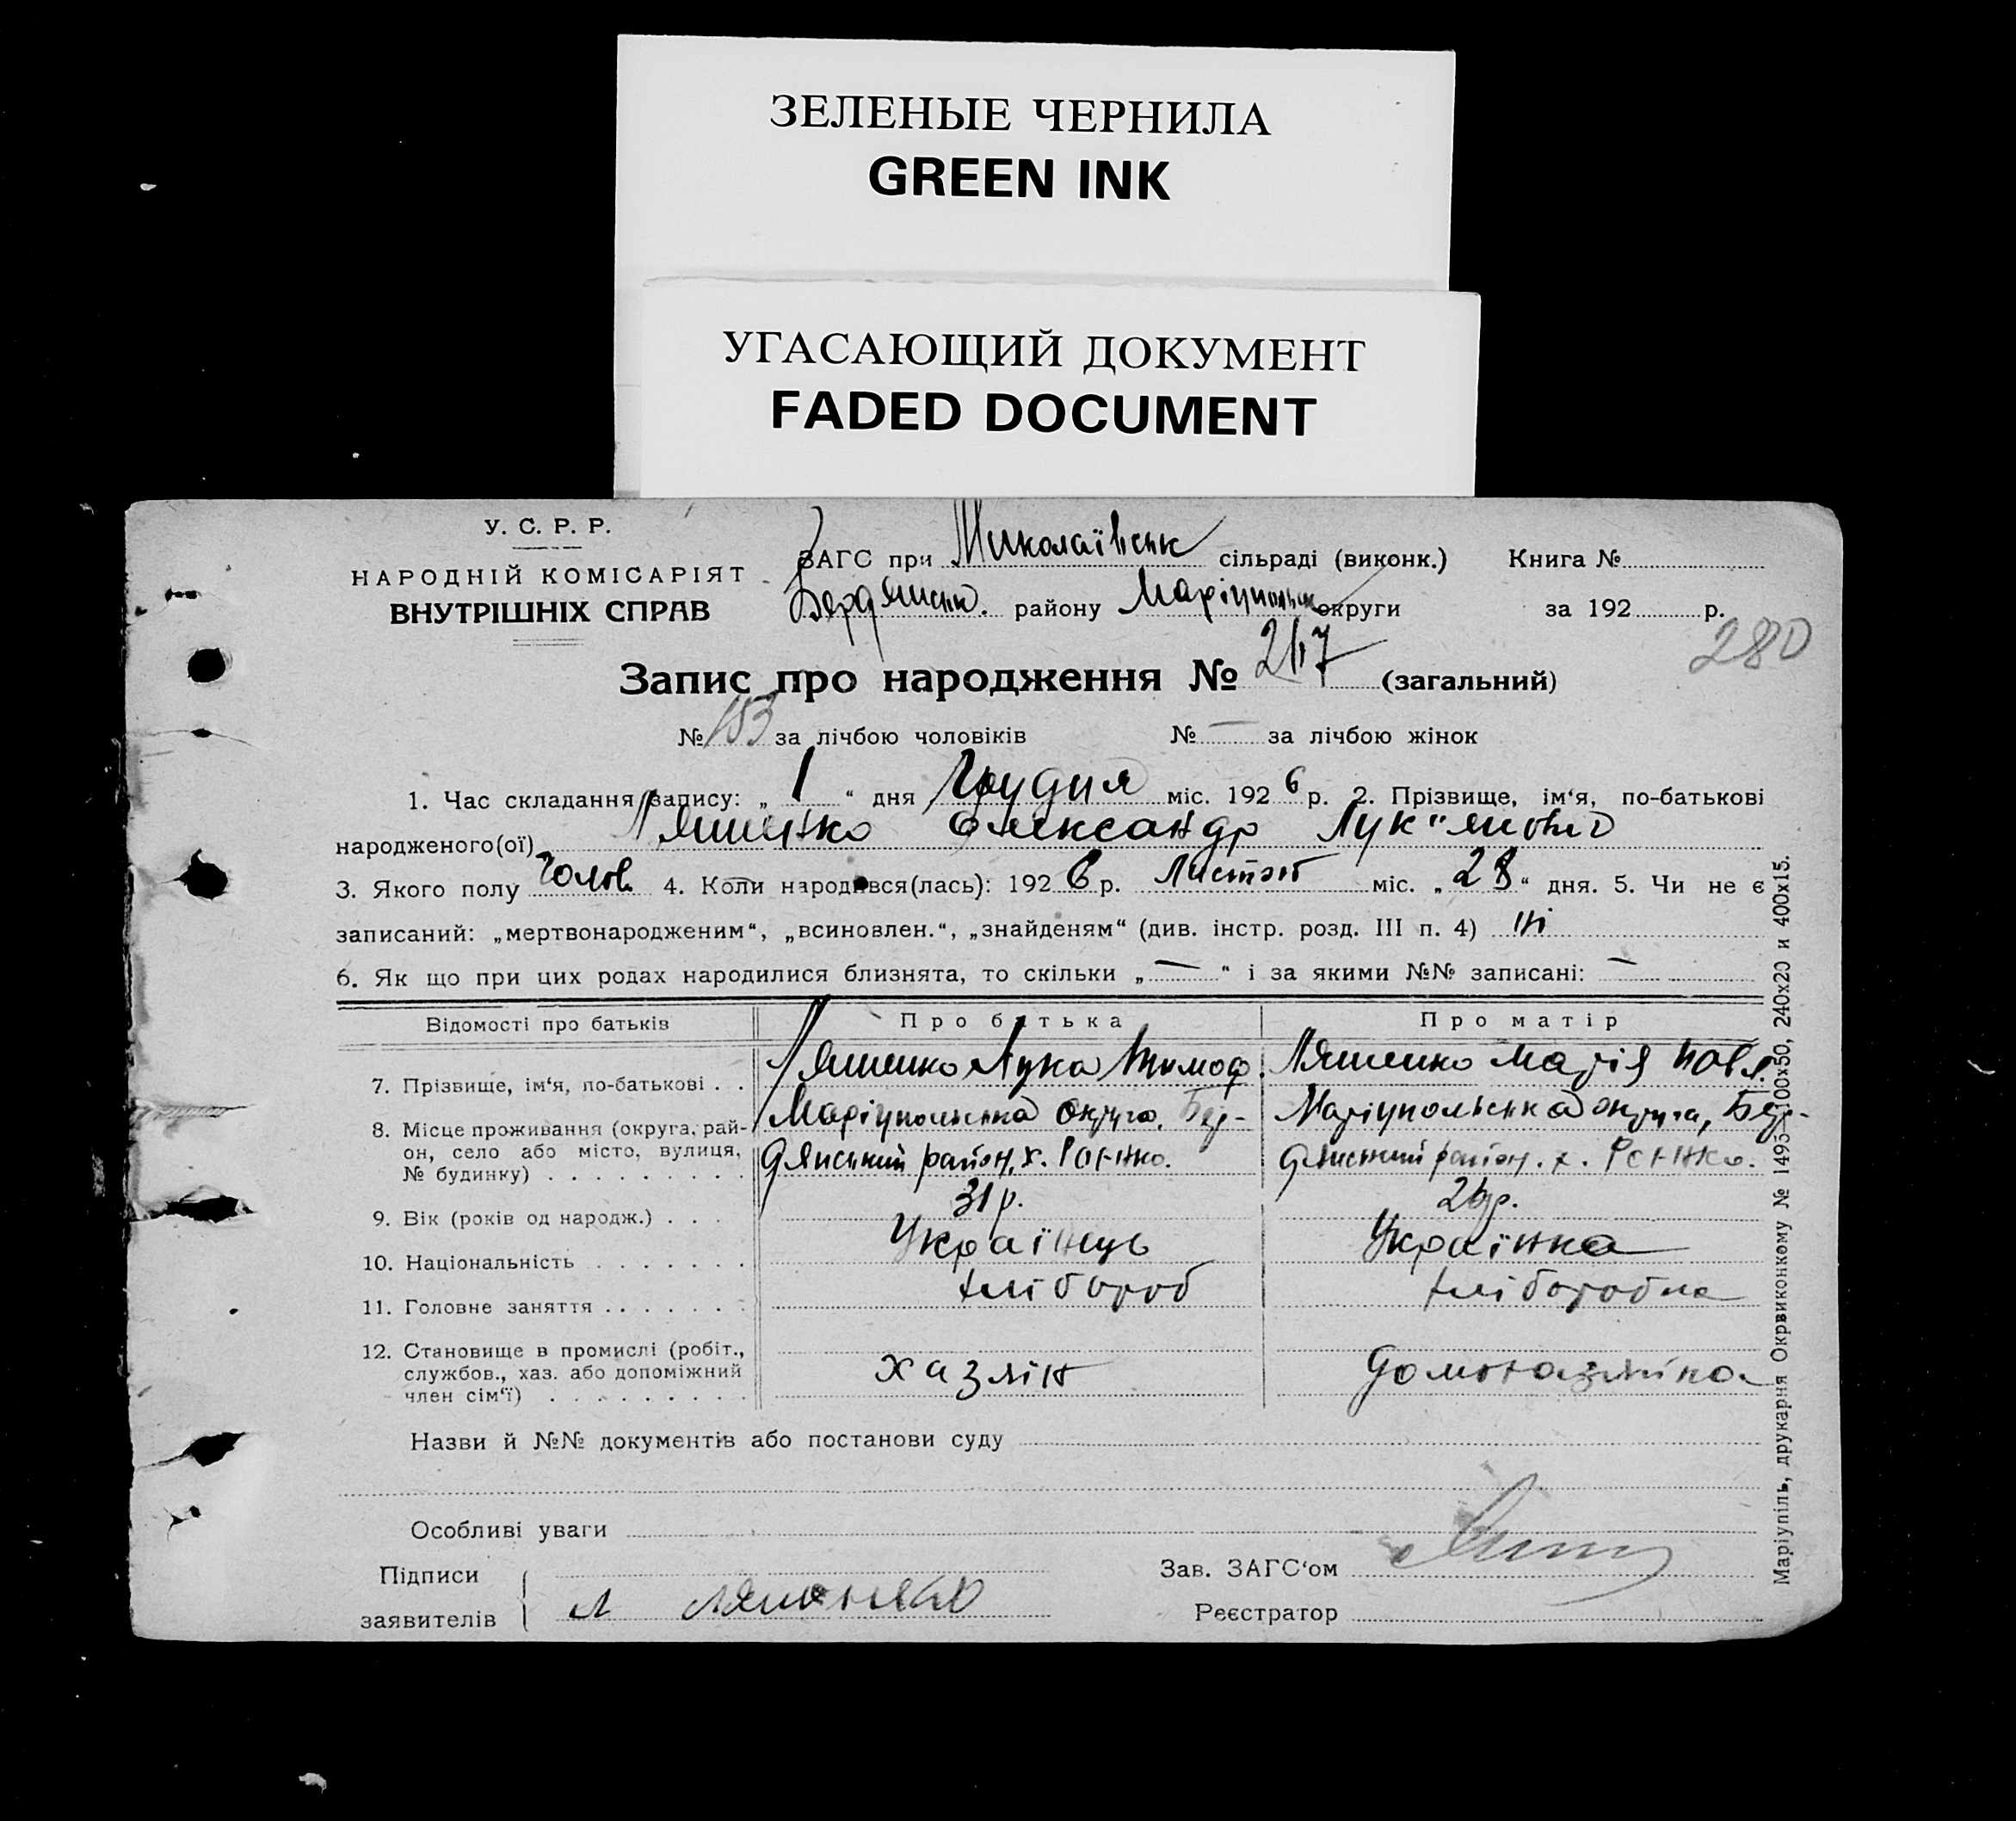 ЗЕЛЕНЫЕ ЧЕРНИЛА
GREEN INK
УГАСАЮЩИЙ ДОКУМЕНТ
FADED DOCUMENT
У. С. Р. Р.
НАРОДНІЙ КОМІСАРІЯТ
ВНУТРІШНІХ СПРАВ
ЗАГС при Миколаївськ сільраді (виконк.) Книга №
Бердянськ. району Маріупольськ округи за 192 р.
280
Запис про народження № 247 (загальний)
№ 153 за лічбою чоловіків № — за лічбою жінок
1. Час складання запису: „ 1 “ дня Грудня міс. 1926 р. 2. Прізвище, ім‘я, по-батькові
народженого(ої) Ляшенко Олександр Лук"янович
3. Якого полу Чолов. 4. Коли народився(лась): 1926 р. Листоп міс. „ 28 “ дня. 5. Чи не є
записаний: „мертвонародженим“, „всиновлен.“, „знайденям“ (див. інстр. розд. III п. 4) ні
6. Як що при цих родах народилися близнята, то скільки „ — “ і за якими №№ записані: —
Відомості про батьків Про батька Про матір
7. Прізвище, ім‘я, по-батькові . . Ляшенко Лука Тимоф. Ляшенко Марія Повл.
8. Місце проживання (округа, рай-
он, село або місто, вулиця,
№ будинку) Маріупольська округа, Бер-
дянський район, х. Маріупольська округа, Бер-
дянський район. х.
9. Вік (років од народж.) . . . 31 р. 26 р.
10. Національність Українець Українка
11. Головне заняття Хлібороб Хліборобка
12. Становище в промислі (робіт.,
службов., хаз. або допоміжний
член сім‘ї) Хазяїн Домохазяїка
Назви й №№ документів або постанови суду
Особливі уваги
Підписи
заявителів Л Ляшенко
Зав. ЗАГС‘ом
Реєстратор
Маріупіль, друкарня Окрвиконкому № 1495—100x50, 240x20 и 400x15.